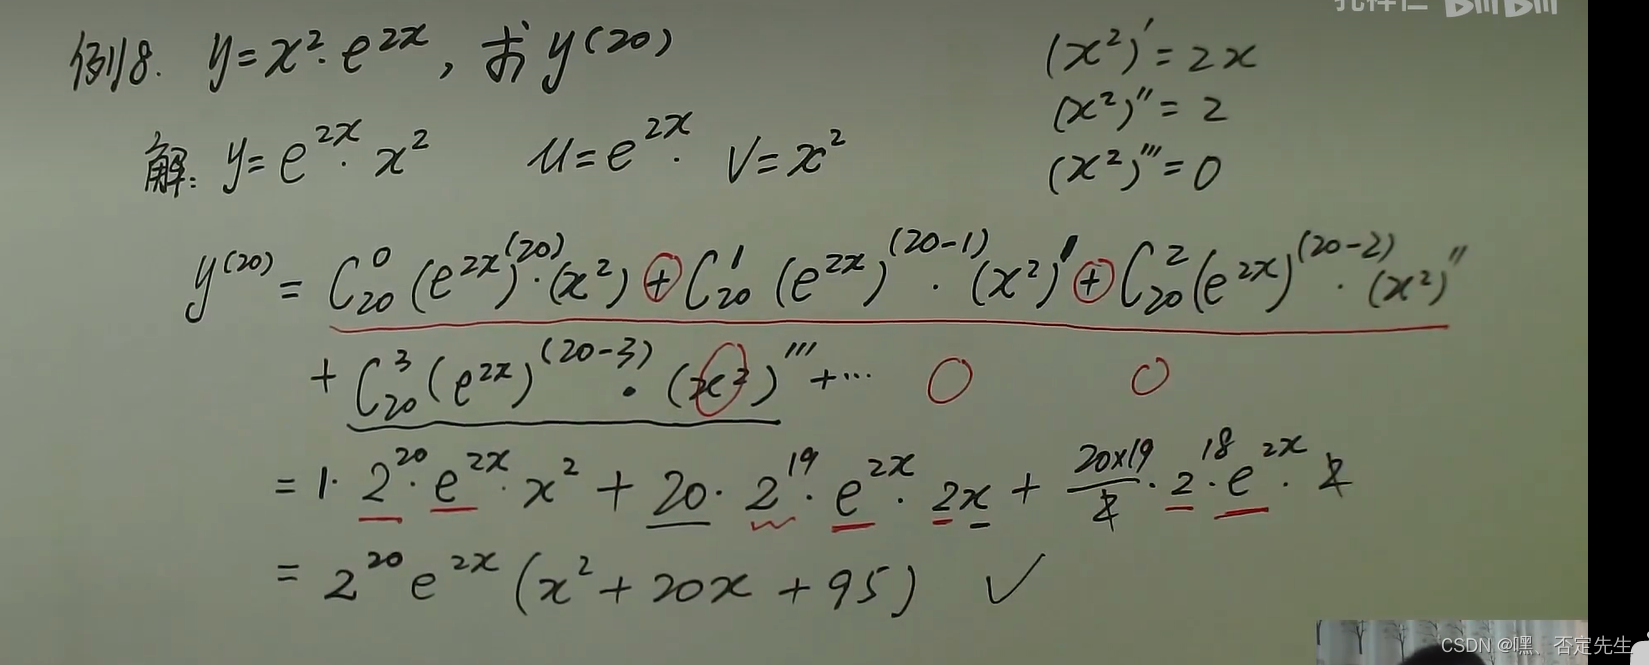 孔祥仁 BiliBili
例8. y=x²·e^{2x}, 求 y^{(20)}
(x²)'=2x
(x²)''=2
(x²)'''=0
解: y=e^{2x}·x² u=e^{2x}· v=x²
y^{(20)}=C_{20}^{0}(e^{2x})^{(20)}·(x²)+C_{20}^{1}(e^{2x})^{(20-1)}·(x²)'+C_{20}^{2}(e^{2x})^{(20-2)}·(x²)''
+C_{20}^{3}(e^{2x})^{(20-3)}·(x²)'''+… 0 0
=1·2^{20}·e^{2x}·x²+20·2^{19}·e^{2x}·2x+\frac{20×19}{2}·2^{18}·e^{2x}·2
=2^{20}e^{2x}(x²+20x+95) ✓
CSDN @嘿、否定先生